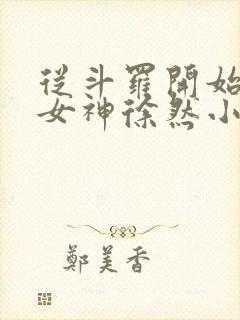 從斗羅開始
女神徐然小
鄭美香